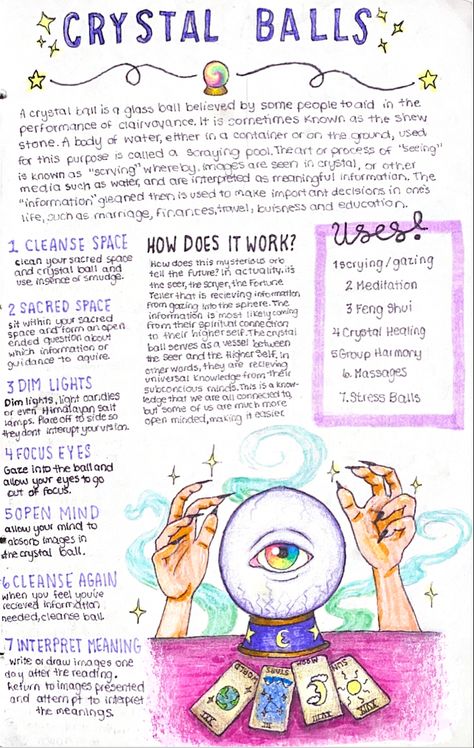 CRYSTAL BALLS
A crystal ball is a glass ball believed by some people to aid in the
performance of clairvoyance. It is sometimes known as the shew
stone. A body of water, either in a container or on the ground, used
for this purpose is called a scraying pool. The art or process of "seeing"
is known as "scrying" whereby, images are seen in crystal, or other
media such as water, and are interpreted as meaningful information. The
"information" gleaned then is used to make important decisions in one's
life, such as marriage, finances, travel, buisness and education.
1 CLEANSE SPACE
clean your sacred space
and crystal ball and
use insence or smudge.
2 SACRED SPACE
sit within your sacred
space and form an open
ended question about
which information or
guidance to aquire.
3 DIM LIGHTS
Dim lights, light candles
or even Himalayan salt
lamps. Place off to side so
they dont interrupt your vision.
4 FOCUS EYES
Gaze into the ball and
allow your eyes to go
out of focus.
5 OPEN MIND
allow your mind to
absorb images in
the crystal ball.
6 CLEANSE AGAIN
when you feel you've
recieved information
needed, cleanse ball
7 INTERPRET MEANING
write or draw images one
day after the reading.
Return to images presented
and attempt to interpret
the meanings.
HOW DOES IT WORK?
How does this mysterious orb
tell the future? In actuality, it's
the seer, the scryer, the Fortune
Teller that is recieving information
from gazing into the sphere. The
information is most likely coming
from their spiritual connection
to their higher self. The crystal
ball serves as a vessel between
the seer and the Higher Self. In
other words, they are recieving
universal knowledge from their
subconcious minds. This is a know-
ledge that we are all connected to,
but some of us are much more
open minded, making it easier
Uses!
1 scrying/gazing
2 Meditation
3 Feng Shui
4 Crystal Healing
5 Group Harmony
6. Massages
7. Stress Balls
WORLD
STARS
MOON
SUN
XVIII